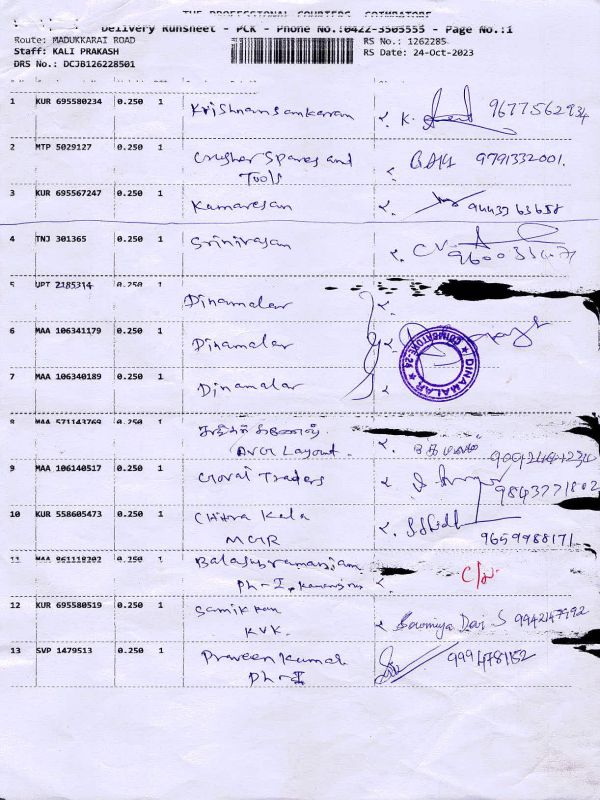 THE PROFESSIONAL COURIERS, COIMBATORE
Delivery Runsheet - PCK - Phone No.:0422-3505555 - Page No.:1
Route: MADUKKARAI ROAD
RS No.: 1262285
Staff: KALI PRAKASH
RS Date: 24-Oct-2023
DRS No.: DCJB126228501
1 KUR 695580234 0.250 1 Krishnansankaran K. 9677562934
2 MTP 5029127 0.250 1 Crusher Spares and 9791332001.
Tools
3 KUR 695567247 0.250 1 Kamaresan 9443763658
4 TNJ 301365 0.250 1 Srinivasan CV.
5 UPT 2185314 0.250 1 Dinamalar
6 MAA 106341179 0.250 1 Dinamalar
DINAMALAR ★ COIMBATORE-24 ★
7 MAA 106340189 0.250 1 Dinamalar
8 MAA 571143769 0.250 1
Layout.
9 MAA 106140517 0.250 1 Coval Traders 9843771802
10 KUR 558605473 0.250 1 Chitra Kala
MCR 9659988171
11 MAA 961110202 0.250 1 Balasubramaniam
Ph-I,
12 KUR 695580519 0.250 1 Samikkan Sowmiya Devi S 9942147992
KVK.
13 SVP 1479513 0.250 1 Praveen Kumar 9994781152
Ph-I